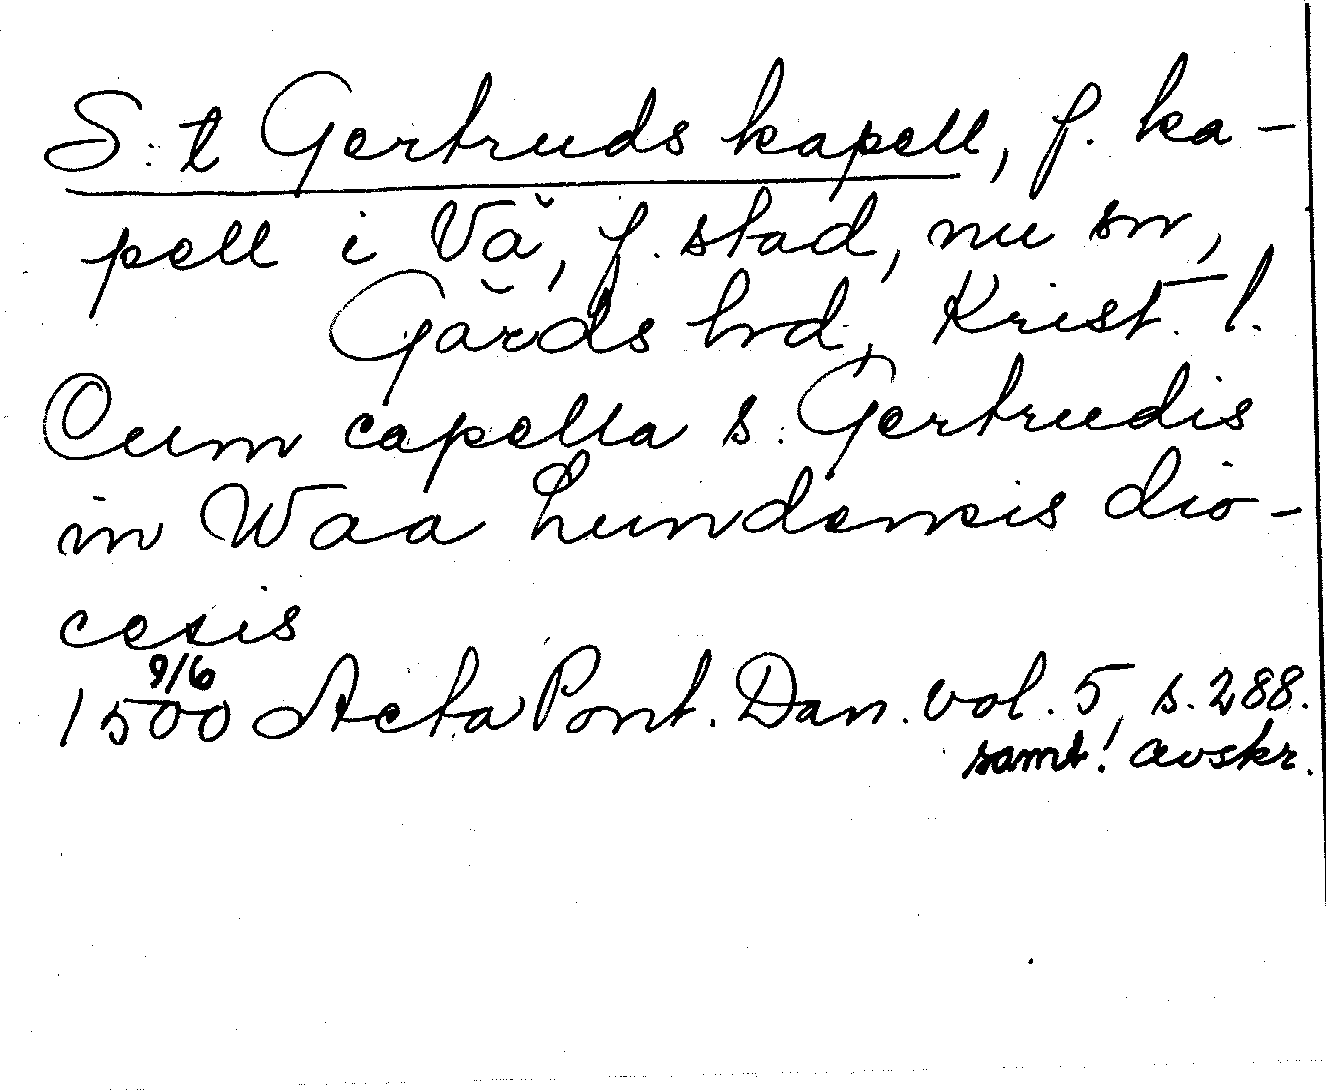 S:t Gertruds kapell, f. ka-
pell i Vå, f. stad, nu sn,
Gärds hrd, Krist. l.
Cum capella s. Gertrudis
in Waa Lundensis dio-
cesis
9/6
1500 Acta Pont. Dan. vol. 5, s. 288.
samt! avskr.